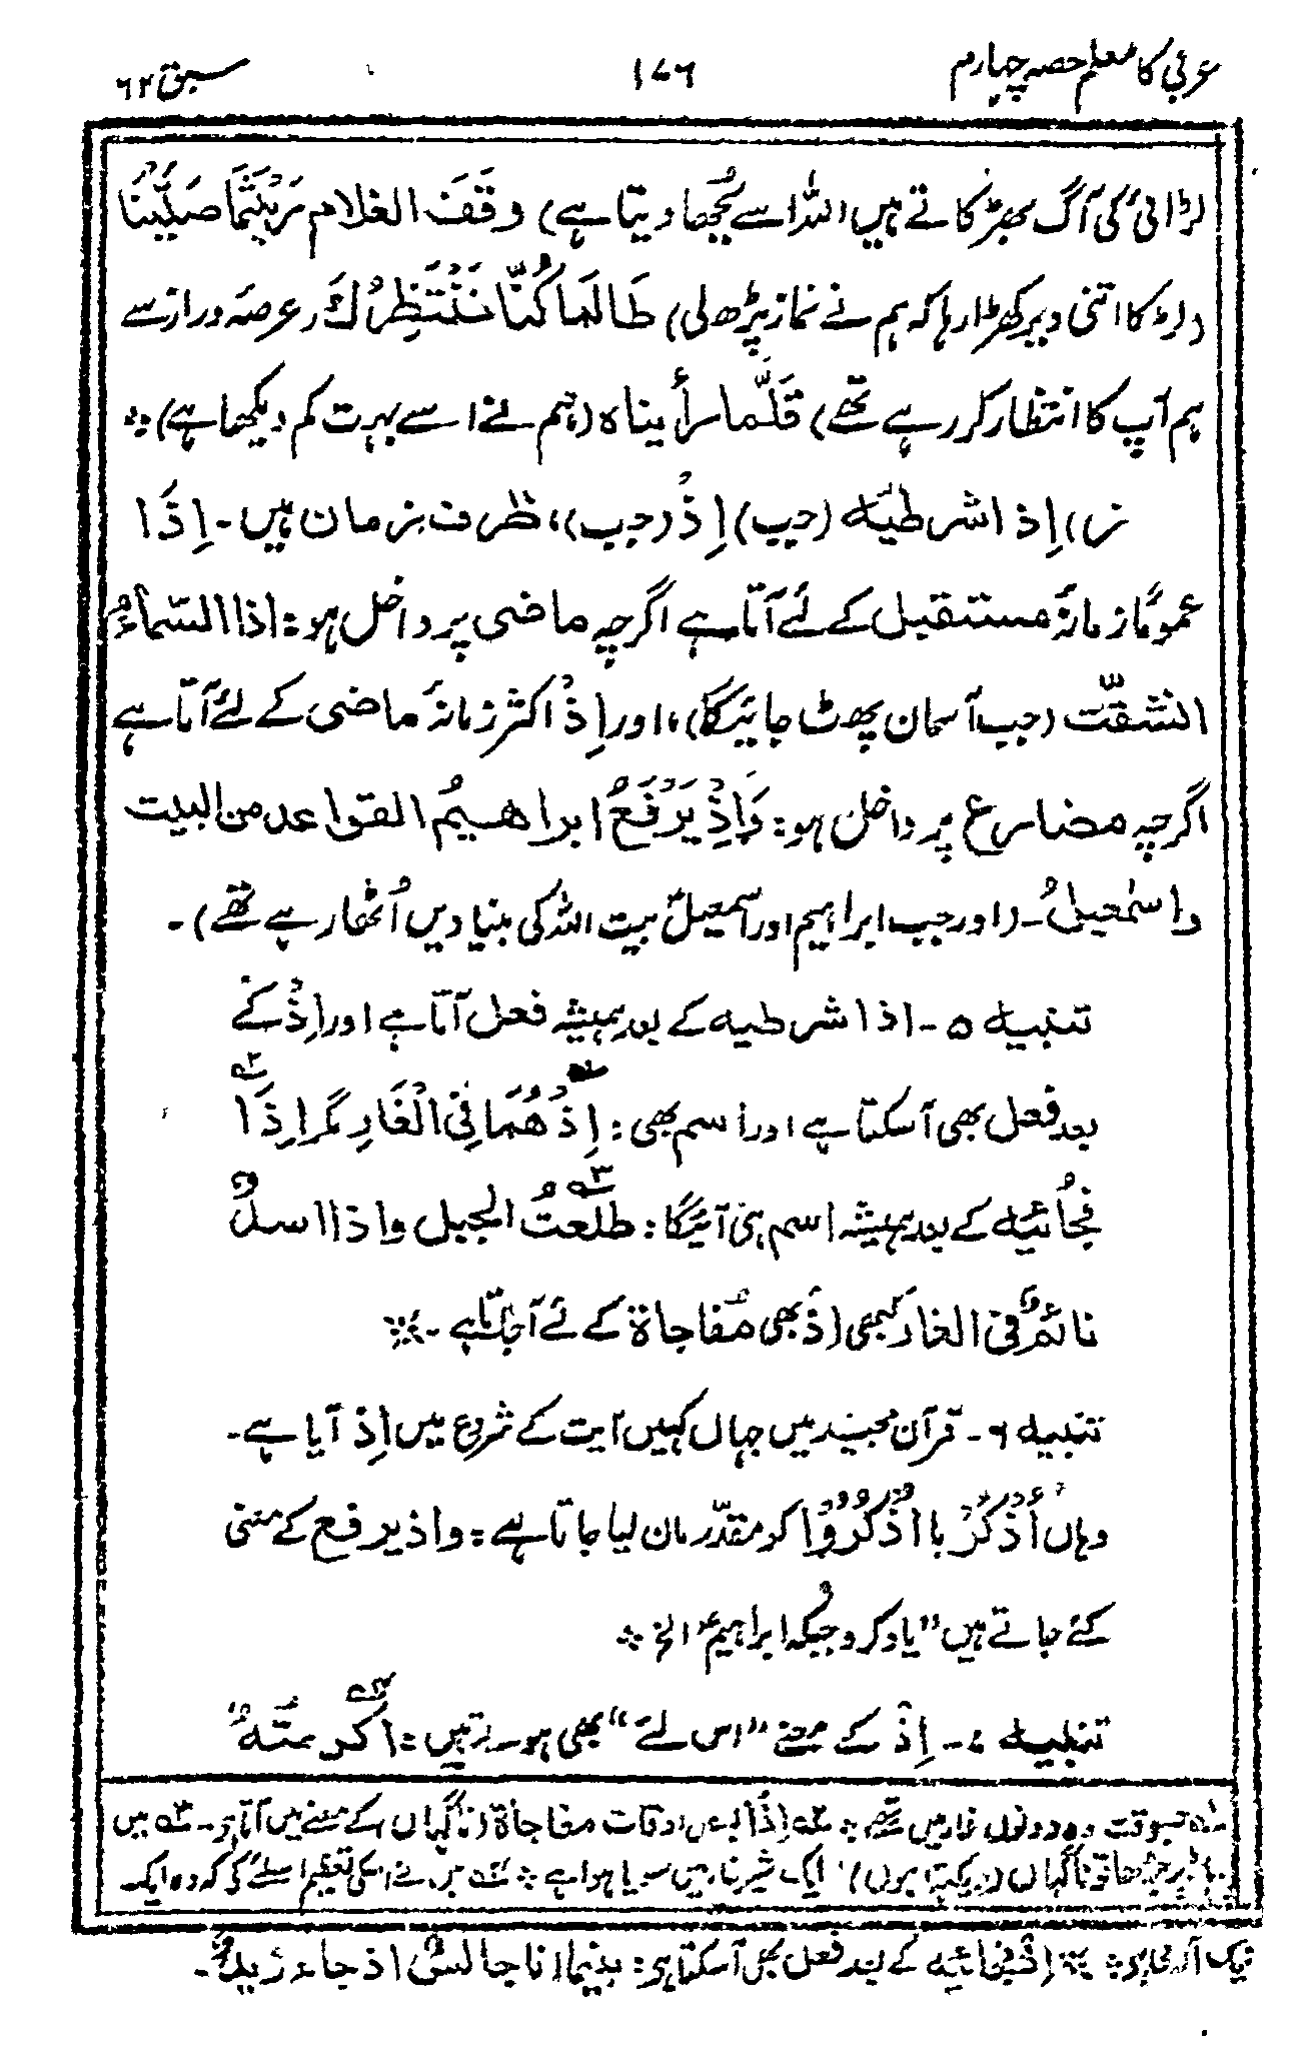 عربی کا معلم حصہ چہارم ۱۷۶ سبق ۶۲
لڑائی کی آگ بھڑکاتے ہیں اللہ اسے بُجھا دیتا ہے) وَقَفَ الغلام رَیْثَمَا صَلَّیْنَا
(لڑکا اتنی دیر کھڑا رہا کہ ہم نے نماز پڑھ لی) طَالَمَا کُنَّا نَنْتَظِرُكَ (عرصہ دراز سے
ہم آپ کا انتظار کر رہے تھے) قَلَّما رأیناہ (ہم نے اسے بہت کم دیکھا ہے) ؞
(ز) اِذا شرطیہ (جب) اِذْ (جب)، ظرف زمان ہیں۔ اِذَا
عمومًا زمانۂ مستقبل کے لئے آتا ہے اگرچہ ماضی پر داخل ہو: اذا السّماءُ
انشقّت (جب آسمان پھٹ جائیگا)، اور اِذْ اکثر زمانۂ ماضی کے لئے آتا ہے
اگرچہ مضارع پر داخل ہو: وَاِذْ یَرْفَعُ ابراھیمُ القواعد من البیت
واسمٰعیلُ۔ (اور جب ابراہیم اور اسمٰعیلؑ بیت اللہ کی بنیادیں اُٹھا رہے تھے)۔
تنبیہ ۵۔ اذا شرطیہ کے بعد ہمیشہ فعل آتا ہے اور اِذْ کے
بعد فعل بھی آسکتا ہے اور اسم بھی: اِذْ هُمَا فِی الْغَارِ مگر اِذَا
فُجائیہ کے بعد ہمیشہ اسم ہی آئیگا: طلعتُ الجبل واذا اسدٌ
نائمٌ فی الغار کبھی اِذْ بھی مُفاجاة کے لئے آجاتا ہے۔
تنبیہ ۶۔ قرآن مجید میں جہاں کہیں آیت کے شروع میں اِذ آیا ہے۔
وہاں اُذْکُرْ یا اُذْکُرُوْا کو مقدّر مان لیا جاتا ہے: واذ یرفع کے معنی
کئے جاتے ہیں ”یاد کرو جبکہ ابراہیمؑ الخ ؞
تنبیہ ۷۔ اِذْ کے معنے ”اس لئے“ بھی ہوتے ہیں: اکرمتُهٗ
جسوقت وہ دونوں غار میں تھے ؞ اِذَا بعض اوقات مفاجاة (ناگہاں) کے معنے میں آتا ہے۔ میں
پہاڑ پر چڑھا تو ناگہاں (دیکھتا ہوں) ایک شیر غار میں سویا ہوا ہے ؞ میں نے اسکی تعظیم اسلئے کی کہ وہ ایک
نیک آدمی ہے ؞ اِذْ فجائیہ کے بعد فعل بھی آسکتا ہے: بینما انا جالسٌ اذ جاء زیدٌ۔